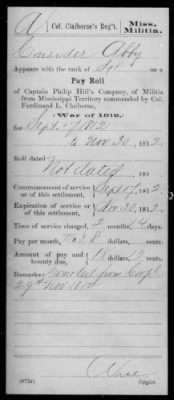 A | Col. Claiborne's Reg't. | Miss. Militia.
Abby
Appears with the rank of Sgt on a
Pay Roll
of Captain Philip Hill's Company, of Militia
from Mississippi Territory commanded by Col.
Ferdinand L. Claiborne,
(War of 1812,)
for Sept. 17, 1812
to Nov 30, 1812.
Roll dated
Not dated, 181
Commencement of service or of this settlement, Sept 17, 1812.
Expiration of service or of this settlement, Nov 30, 1812.
Time of service charged, 2 months 14 days.
Pay per month, 7 to 8 dollars, cents.
Amount of pay and bounty due, 18 dollars, cents.
Remarks: from Corpl
29th Nov 1812
(572d)
Copyist.